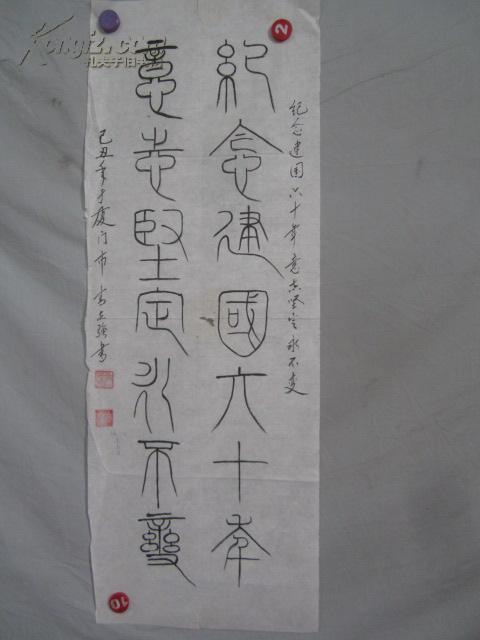 紀念建國六十年
意志堅定永不變
纪念建国六十年意志坚定永不变
己丑年于厦门市 李立强书
Kongfz.com
孔夫子旧书网
2
10